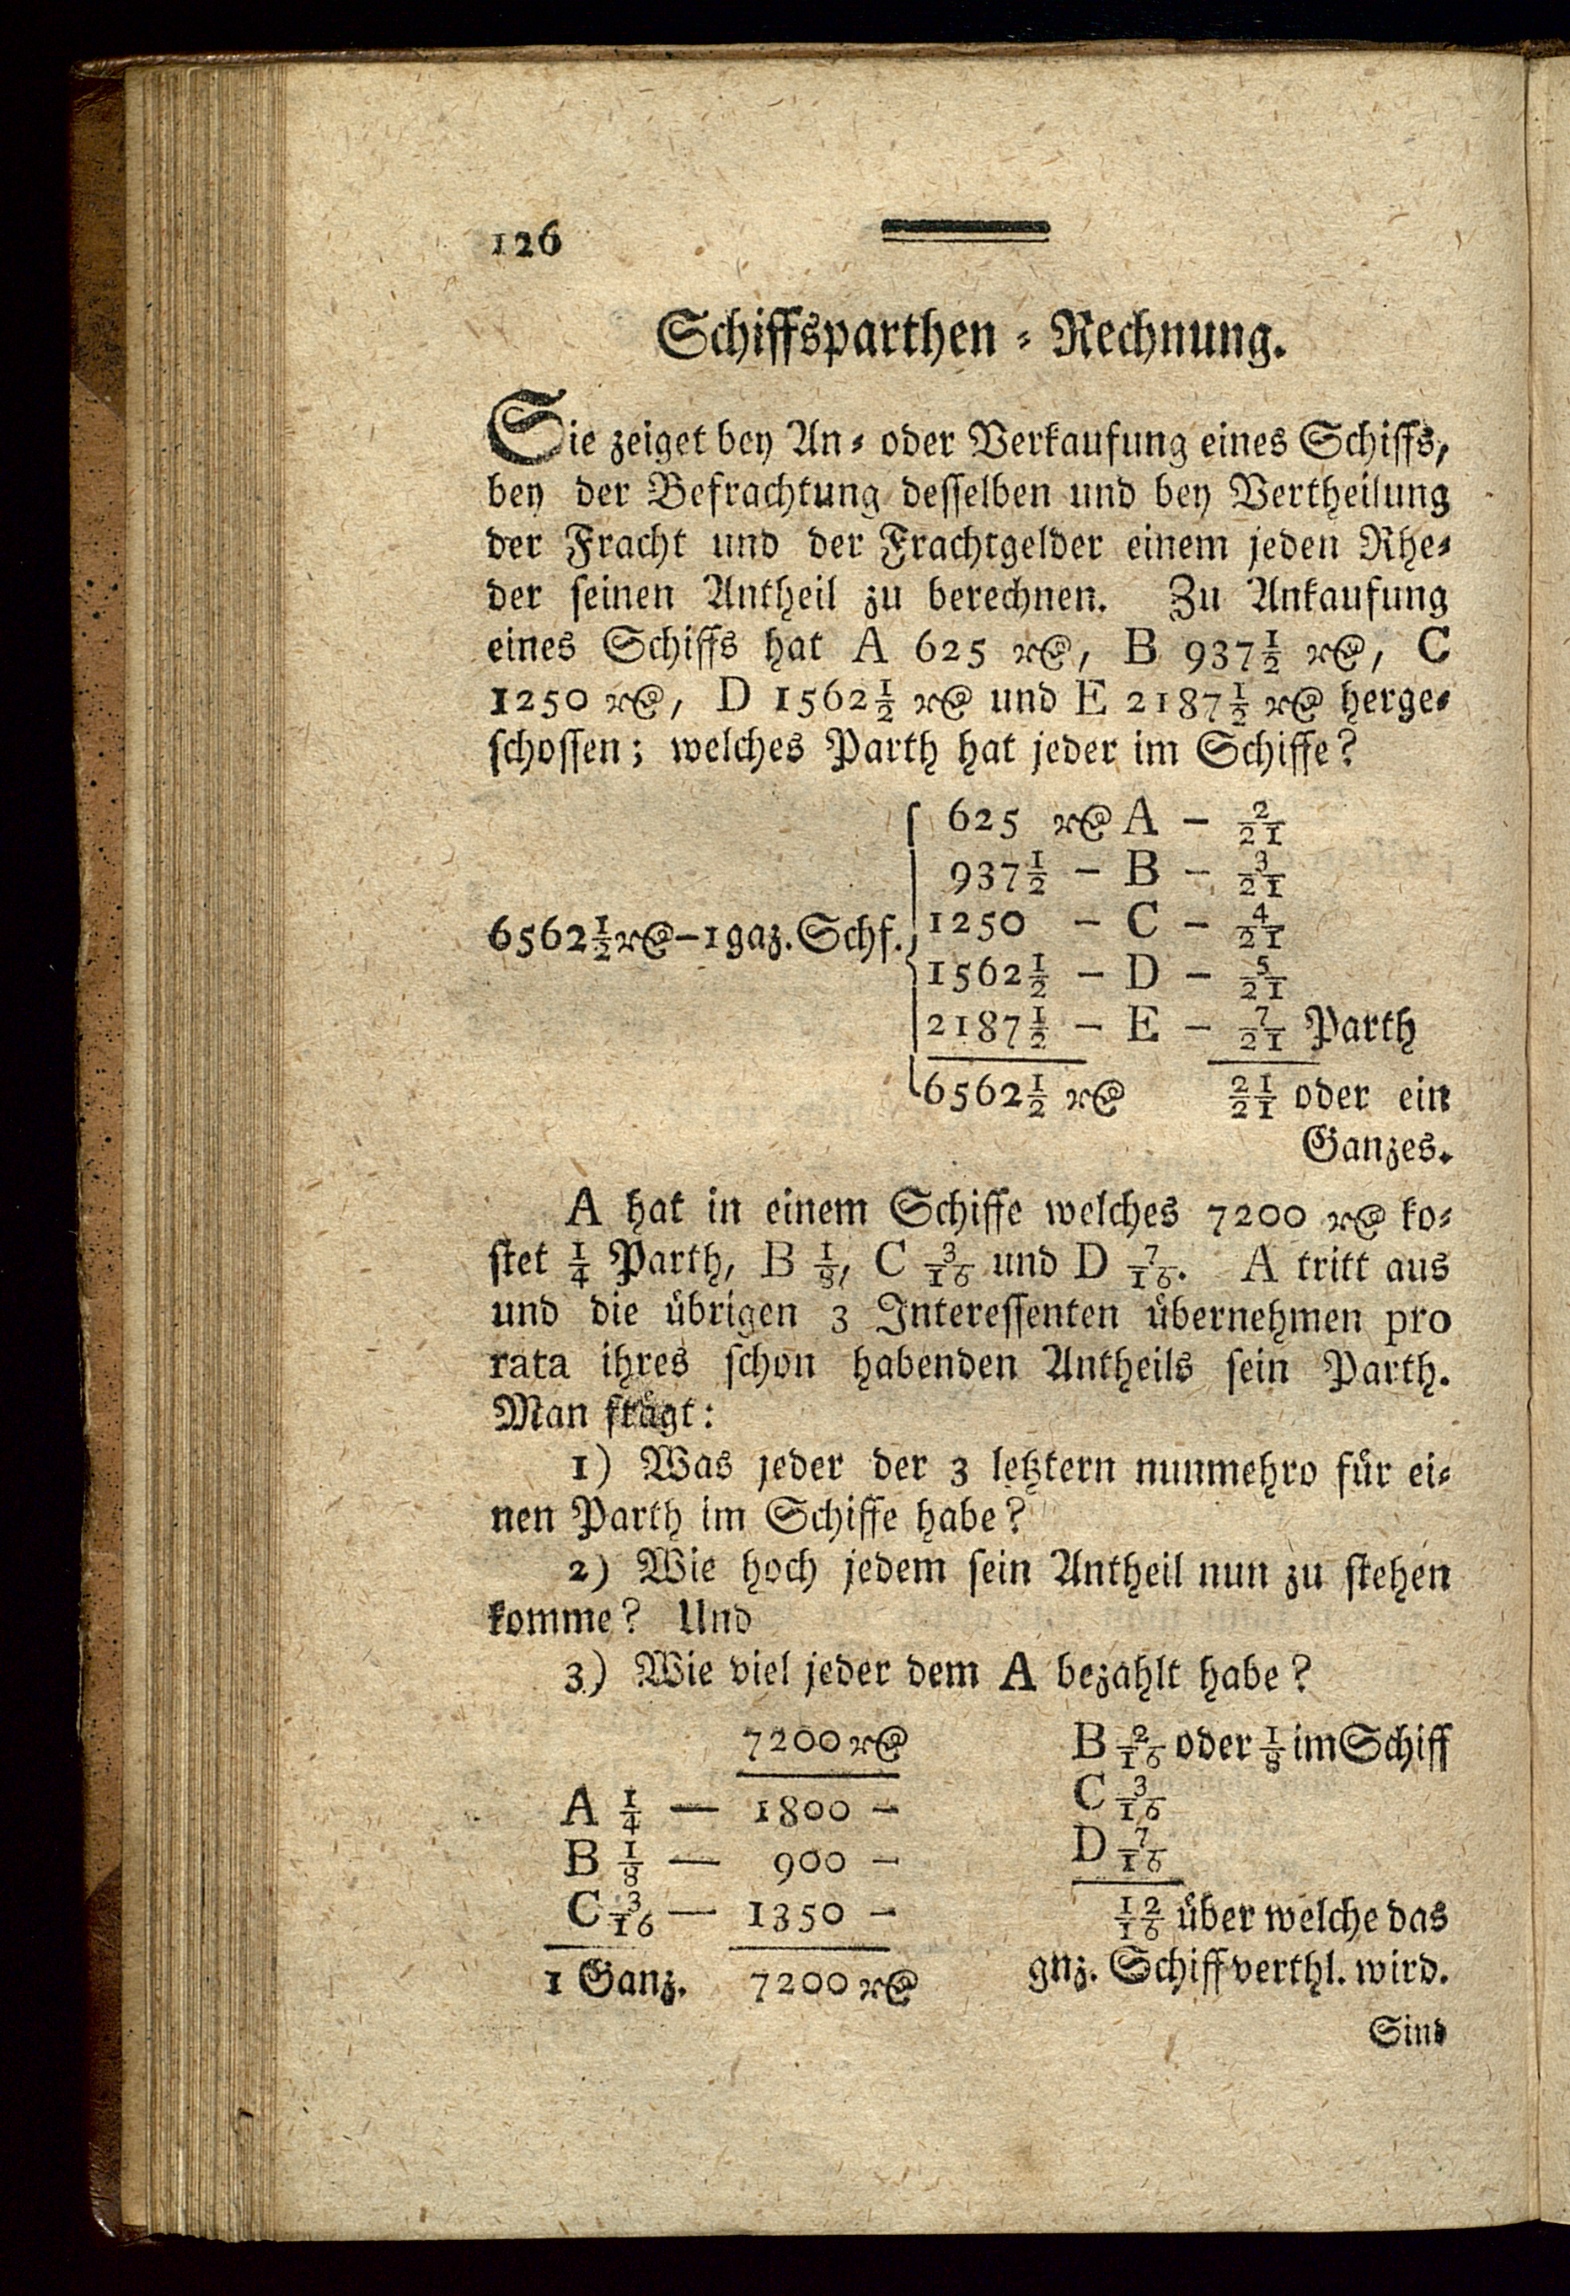 126
Schiffsparthen - Rechnung.
Sie zeiget bey An- oder Verkaufung eines Schiffs,
bey der Befrachtung desselben und bey Vertheilung
der Fracht und der Frachtgelder einem jeden Rhe-
der seinen Antheil zu berechnen. Zu Ankaufung
eines Schiffs hat A 625 rC, B 937 1/2 rC, C
1250 rC, D 1562 1/2 rC und E 2187 1/2 rC herge-
schossen; welches Parth hat jeder im Schiffe?
625 rC A - 2/21
937 1/2 - B - 3/21
6562 1/2 rC - 1 gaz. Schf. 1250 - C - 4/21
1562 1/2 - D - 5/21
2187 1/2 - E - 7/21 Parth
6562 1/2 rC 21/21 oder ein
Ganzes.
A hat in einem Schiffe welches 7200 rC ko-
stet 1/4 Parth, B 1/8, C 3/16 und D 7/16. A tritt aus
und die übrigen 3 Interessenten übernehmen pro
rata ihres schon habenden Antheils sein Parth.
Man frägt:
1) Was jeder der 3 letztern nunmehro für ei-
nen Parth im Schiffe habe?
2) Wie hoch jedem sein Antheil nun zu stehen
komme? Und
3) Wie viel jeder dem A bezahlt habe?
7200 rC B 2/16 oder 1/8 im Schiff
A 1/4 — 1800 - C 3/16
B 1/8 — 900 - D 7/16
C 3/16 — 1350 - 12/16 über welche das
1 Ganz. 7200 rC gnz. Schiff verthl. wird.
Sind